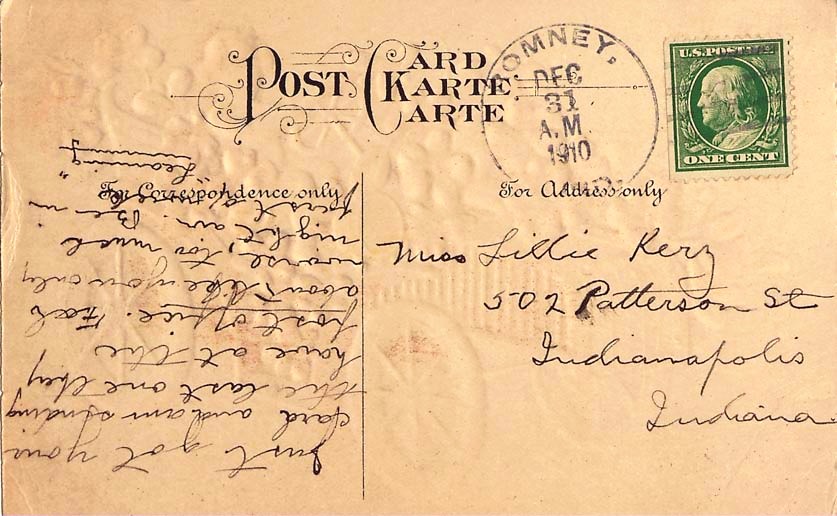 POST CARD
KARTE
CARTE
ROMNEY.
DEC
31
A.M.
1910
IND.
U.S. POSTAGE
ONE CENT
For Correspondence only
For Address only
Miss Lillie Kerz
502 Patterson St
Indianapolis
Indiana.
Just got your
card and am sending
the last one they
have at the
post office. Feel
about like you only
worse, too much
night air. Be in
first of